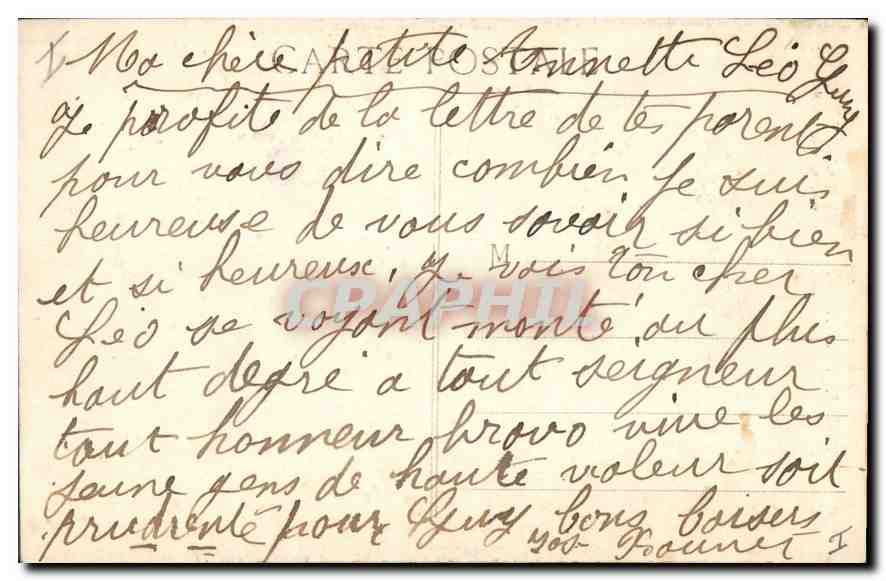 I
Ma chère petite Annette Léo Guy
CARTE POSTALE
Je profite de la lettre de tes parents
pour vous dire combien je suis
heureuse de vous savoir si bien
M
et si heureux, je vois ton cher
CPAPHIL
Léo se voyant monté au plus
haut degré a tout seigneur
tout honneur bravo vive les
jeune gens de haute valeur soit
prudente pour Guy bons baisers
I